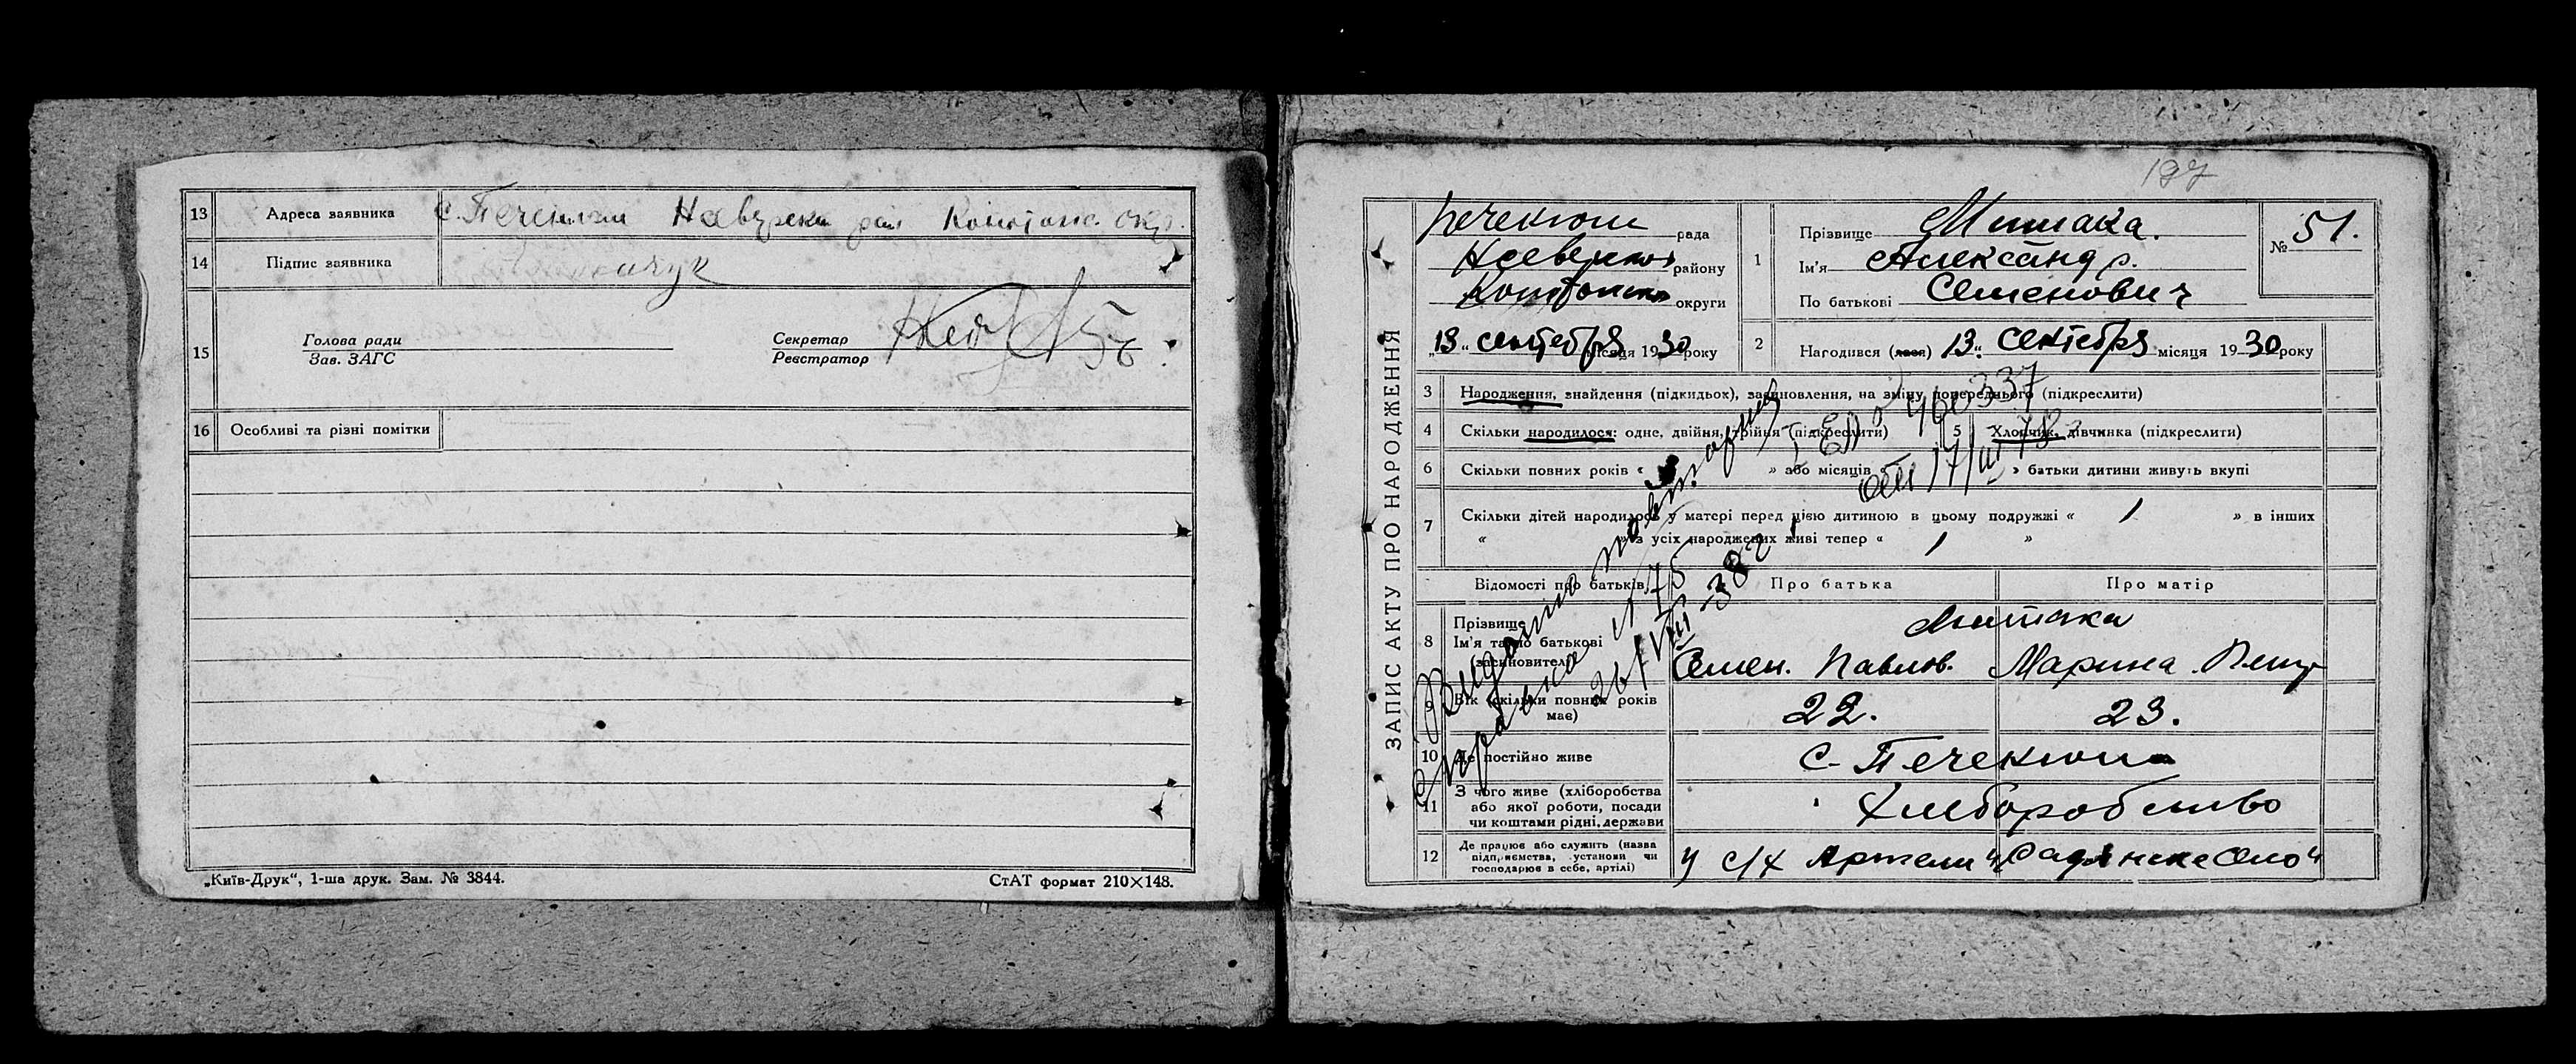 13 Адреса заявника С. Печенюги Невзрски рай Конотопс. окр.
14 Підпис заявника
15 Голова ради
Зав. ЗАГС
Секретар
Реєстратор
16 Особливі та різні помітки
„Київ-Друк“, 1-ша друк. Зам. № 3844.
СтАТ формат 210×148.
197
ЗАПИС АКТУ ПРО НАРОДЖЕННЯ
Печенюги рада
району
округи
„13“ сентебря місяця 1930 року
1 Прізвище Митака.
Ім'я Александр.
По батькові Семенович
№ 51.
2 Народився (лася) 13 „ Сентебря місяця 1930 року
3 Народження, знайдення (підкидьох), засиновлення, на зміну попереднього (підкреслити)
4 Скільки народилося: одне, двійня, трійня (підкреслити)
5 Хлопчик, дівчинка (підкреслити)
6 Скільки повних років « » або місяців « » батьки дитини живуть вкупі
7 Скільки дітей народилося у матері перед цією дитиною в цьому подружжі « 1 » в інших
« » з усіх народжених живі тепер « 1 »
Відомості про батьків
Про батька
Про матір
8 Прізвище
Ім'я та по батькові
(засиновителя)
Митака
Семен. Павлов. Марина
9 Вік (скільки повних років має)
22.
23.
10 Де постійно живе
С. Печенюги
11 З чого живе (хліборобства або якої роботи, посади чи коштами рідні, держави
Хлеборобство
12 Де працює або служить (назва підприємства, установи чи господарює в себе, артілі)
у с/х Артели
Видано повторно
I ЕЛ № 460337
от 17/III 78
справка № 75
26/VIII-38 г.